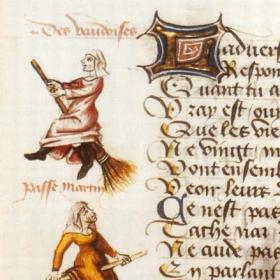 Des vaudoises
passe martin
Laduers
Respon
Quant tu a
Vray est our
Que les vie
Ne vingt n
Vont ensemb
Veoir leurs
Ce nest pas
Tache
Ne aude pas
En parlant